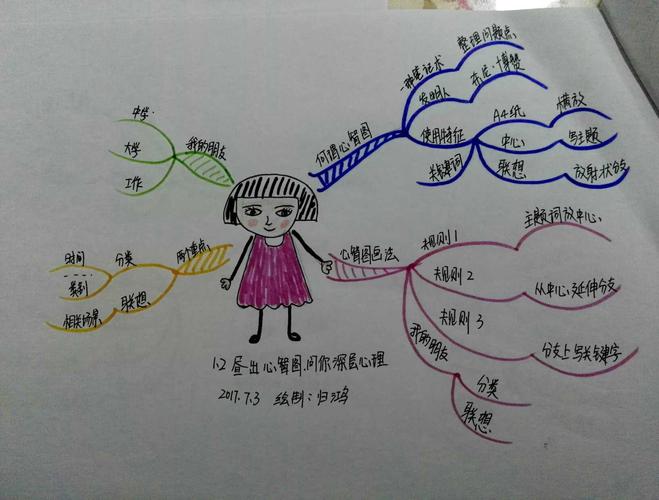 何谓心智图
一种笔记术
整理问题点
发明人
东尼·博赞
使用特征
A4纸
横放
中心
写主题
联想
放射状分支
关键词
心智图画法
规则1
主题词放中心
规则2
从中心延伸分支
规则3
分支上写关键字
我的朋友
分类
联想
两个重点
分类
时间
类别
联想
相关场景
我的朋友
中学
大学
工作
1.2 画出心智图,问你深层心理
2017.7.3 绘制:归鸿